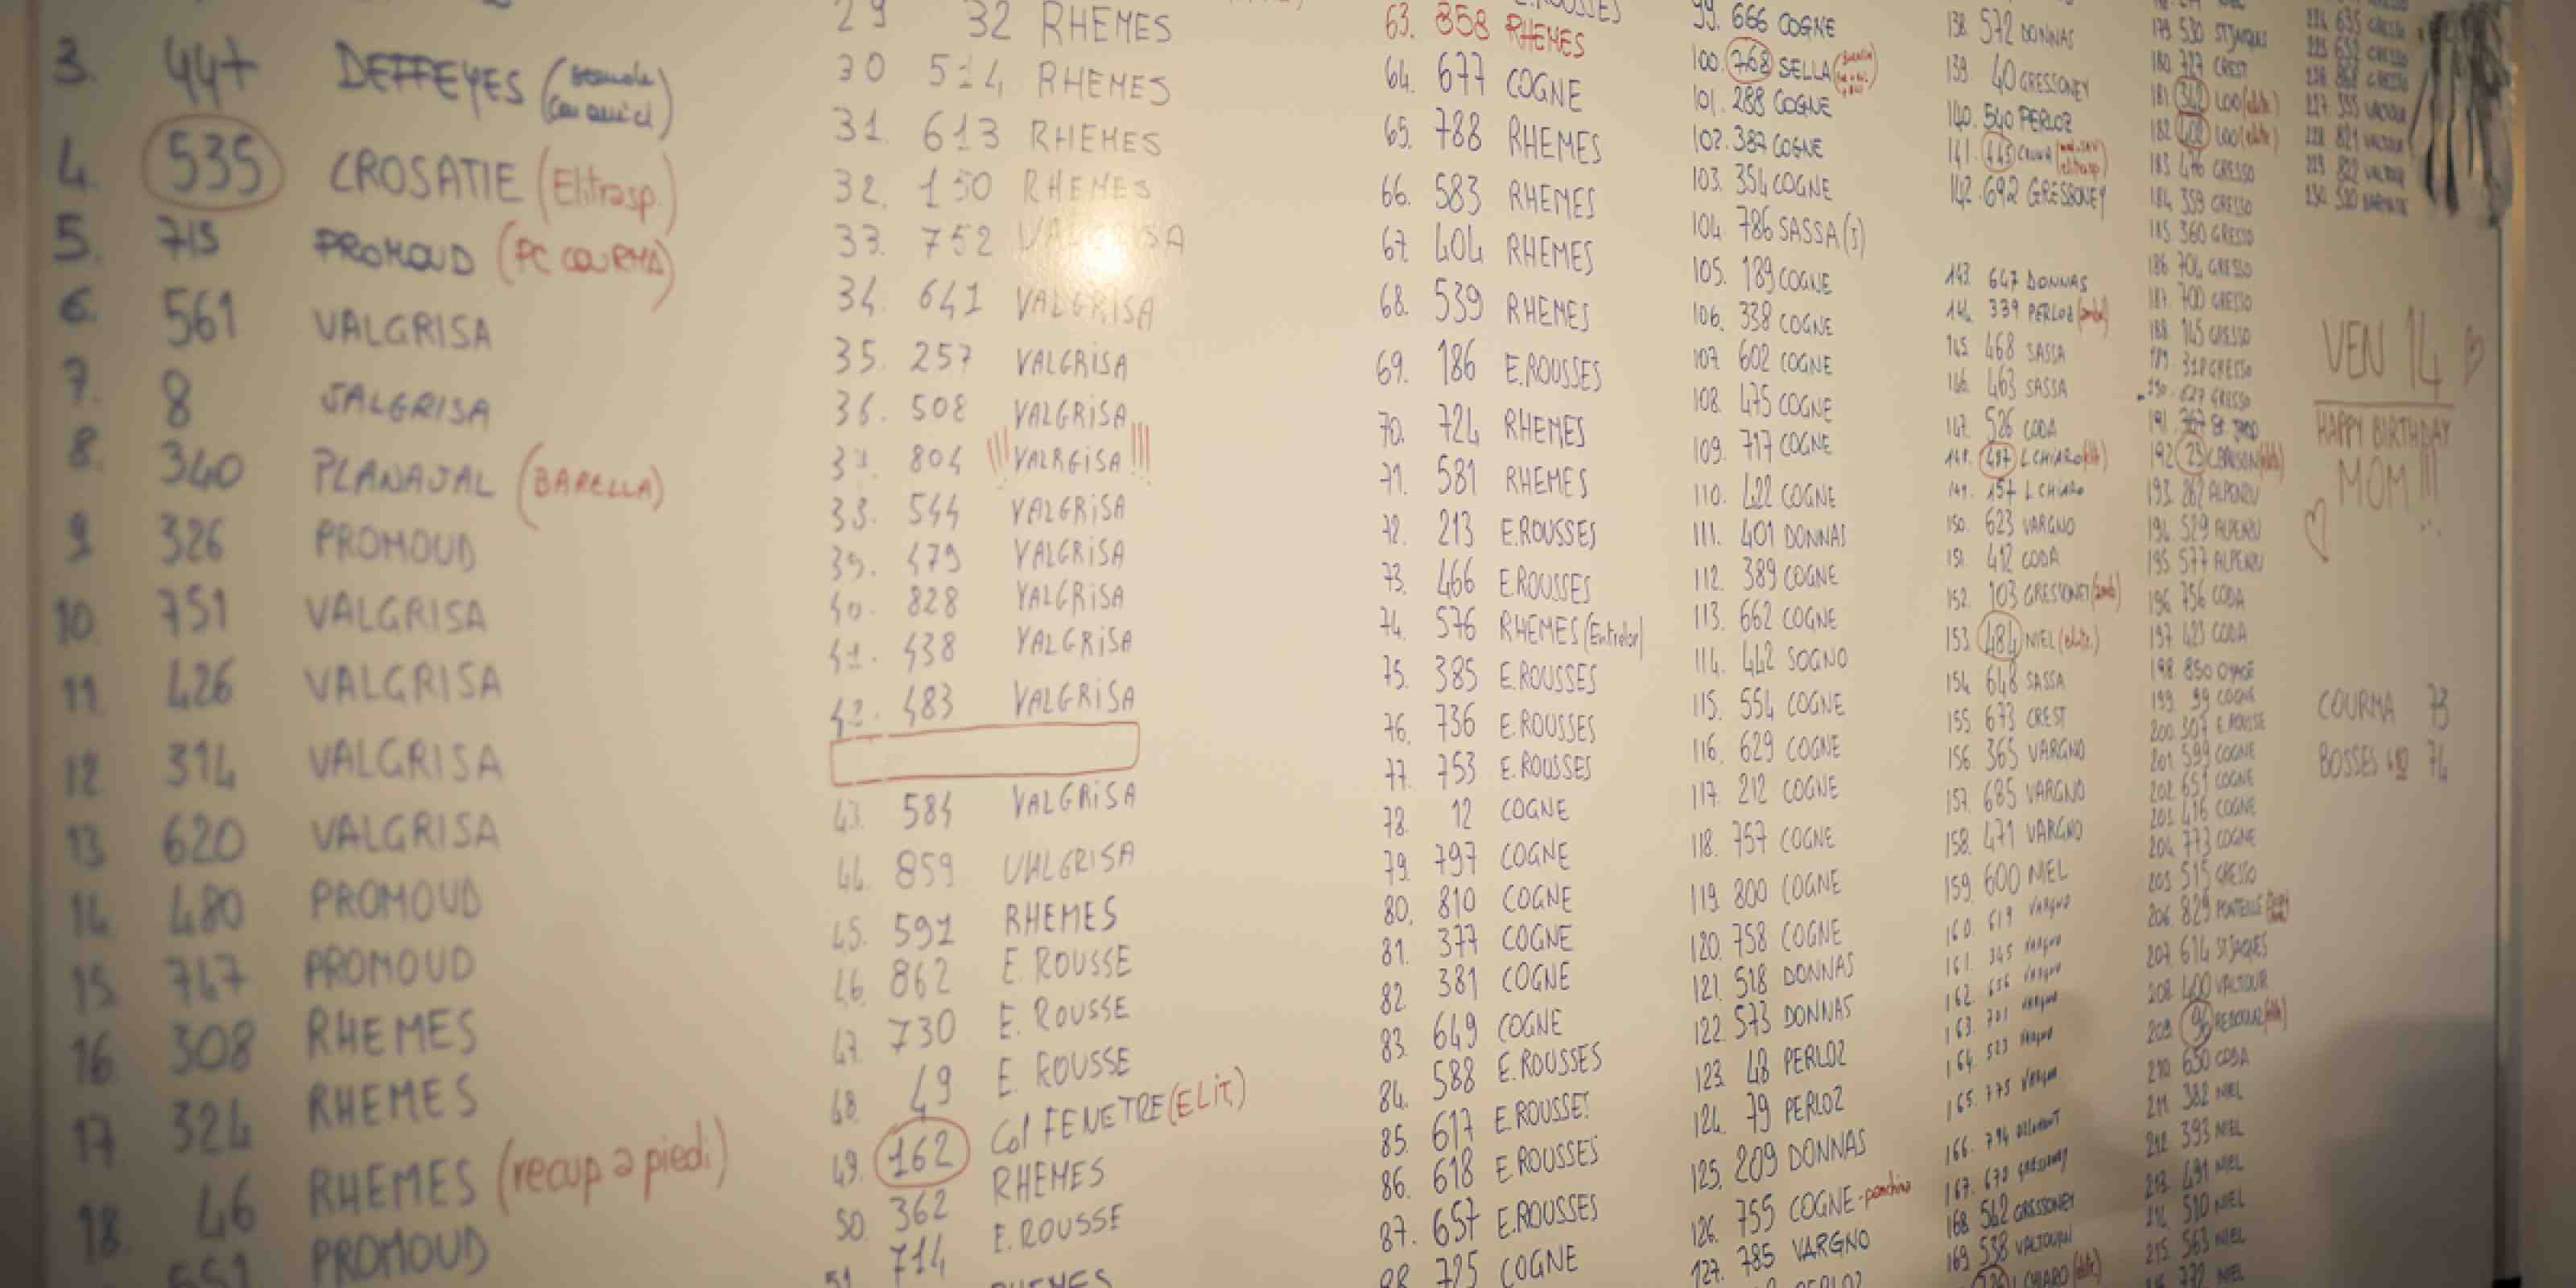 3. 447 DEFFEYES
4. 535 CROSATIE (Elitrasp.)
5. 713 PROMOUD (PC COURMA)
6. 561 VALGRISA
7. 8 VALGRISA
8. 340 PLANAVAL (BARELLA)
9 326 PROMOUD
10 751 VALGRISA
11 426 VALGRISA
12 314 VALGRISA
13 620 VALGRISA
14 480 PROMOUD
15 747 PROMOUD
16 308 RHEMES
17 324 RHEMES
18 46 RHEMES (recup a piedi)
551 PROMOUD
29 32 RHEMES
30 514 RHEMES
31. 613 RHEMES
32. 150 RHEMES
33. 752 VALGRISA
34. 641 VALGRISA
35. 257 VALGRISA
36. 508 VALGRISA
37. 804 !!! VALRGISA !!!
38. 544 VALGRISA
39. 479 VALGRISA
40. 828 VALGRISA
41. 438 VALGRISA
42. 483 VALGRISA
43. 584 VALGRISA
44. 859 VALGRISA
45. 591 RHEMES
46. 862 E. ROUSSE
47. 730 E. ROUSSE
48. 49 E. ROUSSE
49. 162 Col FENETRE (ELIT.)
50. 362 RHEMES
51 714 E. ROUSSE
RHEMES
E.ROUSSES
63. 858 RHEMES
64. 677 COGNE
65. 788 RHEMES
66. 583 RHEMES
67. 404 RHEMES
68. 539 RHEMES
69. 186 E.ROUSSES
70. 724 RHEMES
71. 581 RHEMES
72. 213 E.ROUSSES
73. 466 E.ROUSSES
74. 576 RHEMES (Entrelor)
75. 385 E.ROUSSES
76. 736 E.ROUSSES
77. 753 E.ROUSSES
78. 12 COGNE
79. 797 COGNE
80. 810 COGNE
81. 377 COGNE
82 381 COGNE
83. 649 COGNE
84. 588 E.ROUSSES
85. 617 E.ROUSSES
86. 618 E.ROUSSES
87. 657 E.ROUSSES
88. 725 COGNE
99. 666 COGNE
100. 768 SELLA
101. 288 COGNE
102. 387 COGNE
103. 354 COGNE
104. 786 SASSA (J)
105. 189 COGNE
106. 338 COGNE
107. 602 COGNE
108. 475 COGNE
109. 717 COGNE
110. 422 COGNE
111. 401 DONNAS
112. 389 COGNE
113. 662 COGNE
114. 442 SOGNO
115. 554 COGNE
116. 629 COGNE
117. 212 COGNE
118. 757 COGNE
119. 800 COGNE
120. 758 COGNE
121. 518 DONNAS
122. 573 DONNAS
123. 48 PERLOZ
124. 79 PERLOZ
125. 209 DONNAS
126. 755 COGNE - ponchino
127. 785 VARGNO
PERLOZ
138. 572 DONNAS
139. 40 GRESSONEY
140. 540 PERLOZ
141. 445
142. 692 GRESSONEY
143. 647 DONNAS
144. 339 PERLOZ
145. 468 SASSA
146. 463 SASSA
147. 526 CODA
148. 487 L CHIARO
149. 157 L CHIARO
150. 623 VARGNO
151. 412 CODA
152. 103 GRESSONEY
153. 484 NIEL (elitr.)
154. 648 SASSA
155. 673 CREST
156. 365 VARGNO
157. 685 VARGNO
158. 471 VARGNO
159. 600 NIEL
160. 619 VARGNO
161. 345 VARGNO
162. 656 VARGNO
163. 701 VARGNO
164. 523 VARGNO
165. 775 VARGNO
166. 794
167. 670 GRESSONEY
168. 562 GRESSONEY
169. 538 VALTOURN
CHIARO
179. 530 ST JAQUES
180. 727 CREST
181. 342 LOO (elitr.)
182. 408 LOO (elitr.)
183. 476 GRESSO
184. 359 GRESSO
185. 360 GRESSO
186. 704 GRESSO
187. 700 GRESSO
188. 145 GRESSO
189. 318 GRESSO
190. 627 GRESSO
191. 767
192. 23
193. 262 ALPENZU
194. 529 ALPENZU
195. 577 ALPENZU
196. 756 CODA
197. 423 CODA
198. 850 OYACE
199. 99 COGNE
200. 307 E.ROUSSE
201. 599 COGNE
202. 651 COGNE
203. 416 COGNE
204. 773 COGNE
205. 515 GRESSO
206. 829
207. 614 ST JAQUES
208. 400 VALTOUR
209. 96
210. 650 CODA
211. 382 NIEL
212. 393 NIEL
213. 491 NIEL
214. 510 NIEL
215. 563 NIEL
772 NIEL
224. 635 GRESSO
225. 652 GRESSO
226. 868 GRESSO
227. 355 VALTOUR
228. 821 VALTOUR
229. 822 VALTOUR
230. 520
VEN 14
HAPPY BIRTHDAY
MOM !!!
COURMA 73
BOSSES 74